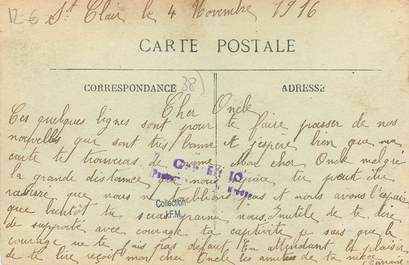 St Clair le 4 Novembre 1916
CARTE POSTALE
CORRESPONDANCE
ADRESSE
38
Cher Oncle
Ces quelques lignes sont pour te faire passer de nos
nouvelles qui sont très bonne et j'espère bien que ma
carte te trouvera de même Mon cher Oncle malgré
la grande distance que nous sépare tu peut être
que nous ne oublions pas et nous avons l'espoir
que bientôt tu nous. Inutile de te dire
de supporté avec courage ta captivité je sais que le
courage ne te fais pas defaut. En attendant le plaisir
de te lire reçoit mon cher Oncle les amitiés de ta nièce
Collection
J.F.M.